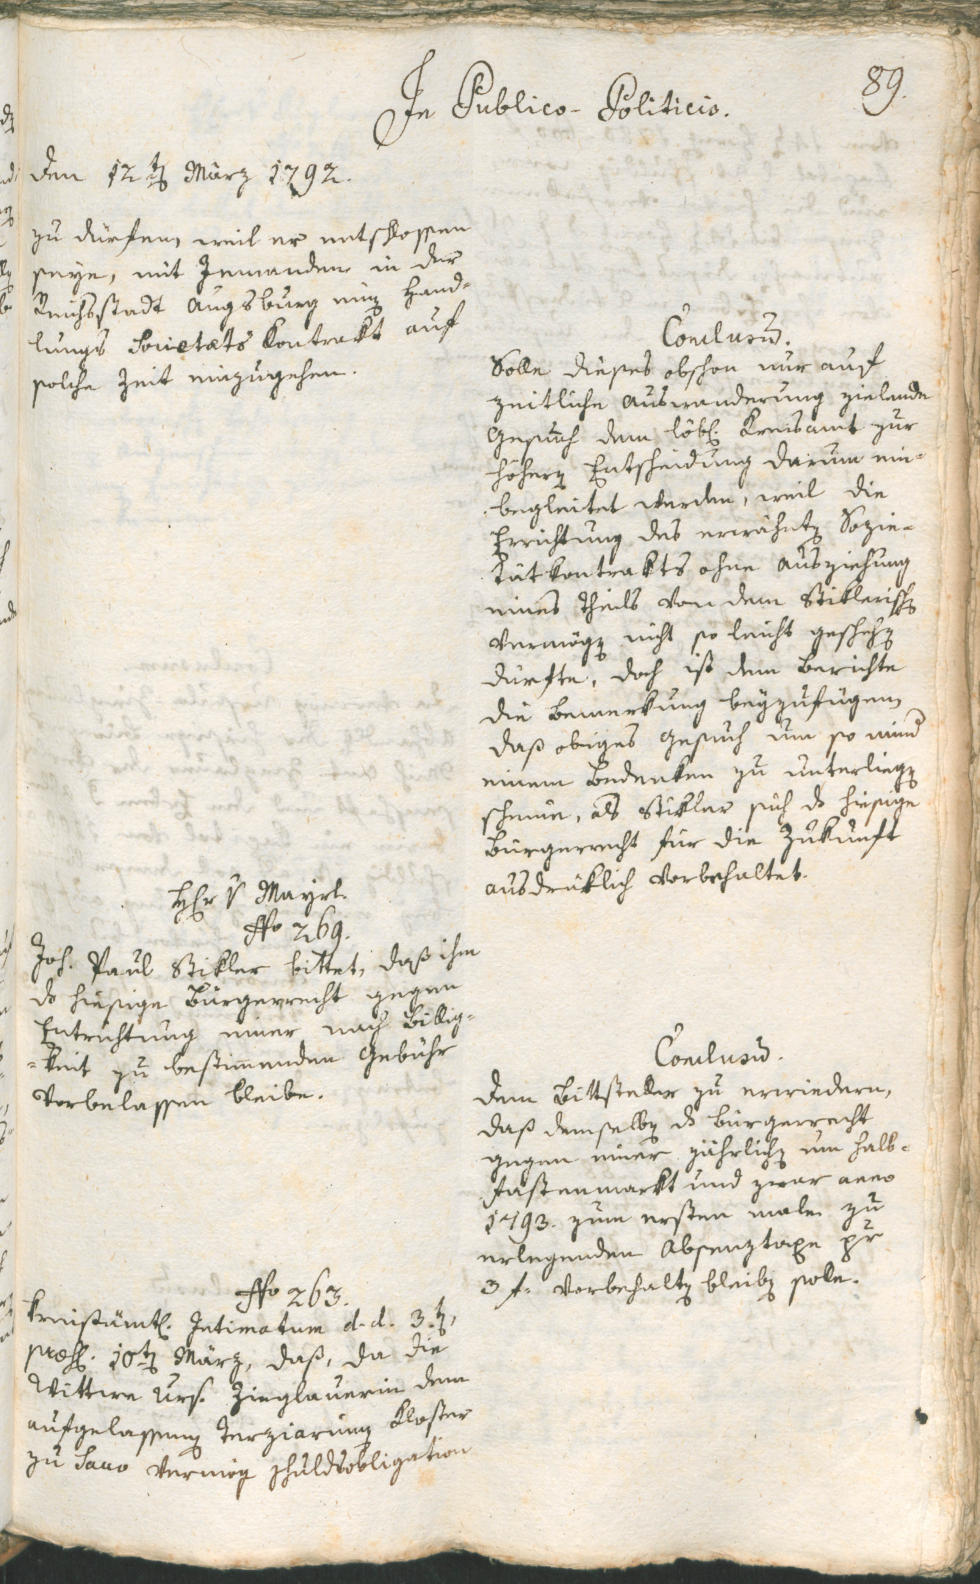 In Publico-Politicis.
89.
Den 12ten März 1792.
zu dürfen, weil er entschlossen
seye, mit Jemanden in der
Reichsstadt Augsburg einen Hand-
lungs Societæts Kontrakt auf
solche Zeit einzugehen.
Conclusum.
Solle dieses obschon nur auf
zeitliche Auswanderung zielende
Gesuch dem löbl. Kreisamt zur
höhern Entscheidung darum ein-
begleitet werden, weil die
Errichtung des erwähnten Sozie-
tätkontrakts ohne Ausziehung
eines Theils von dem Stiklerischen
Vermögen nicht so leicht geschehen
dürfte, doch ist dem Berichte
die Bemerkung beyzufügen,
daß obiges Gesuch um so mind
einem Bedenken zu unterliegen
scheine, als Stikler sich ds hiesige
Bürgerrecht für die Zukunft
ausdrüklich vorbehaltet.
Hr v Mayrl.
No 269.
Joh. Paul Stikler bittet, daß ihm
ds hiesige Bürgerrecht gegen
Entrichtung einer nach Billig-
-keit zu bestimmenden Gebühr
vorbelassen bleibe.
Conclusum.
Dem Bittsteller zu erwiedern,
daß demselben ds Bürgerrecht
gegen einer jährlich um halb-
fastenmarkt und zwar anno
1793. zum ersten male zu
erlegenden Absenztaxe pr
3 f. vorbehalten bleiben solle.
No 263.
Kreisämtl. Intimatum d. d. 3.ten,
præs. 10ten März, daß, da die
Wittwe Urs. Zieglauerin dem
aufgelassenen Terziarinen Kloster
zu Sano vermög schuldobligation